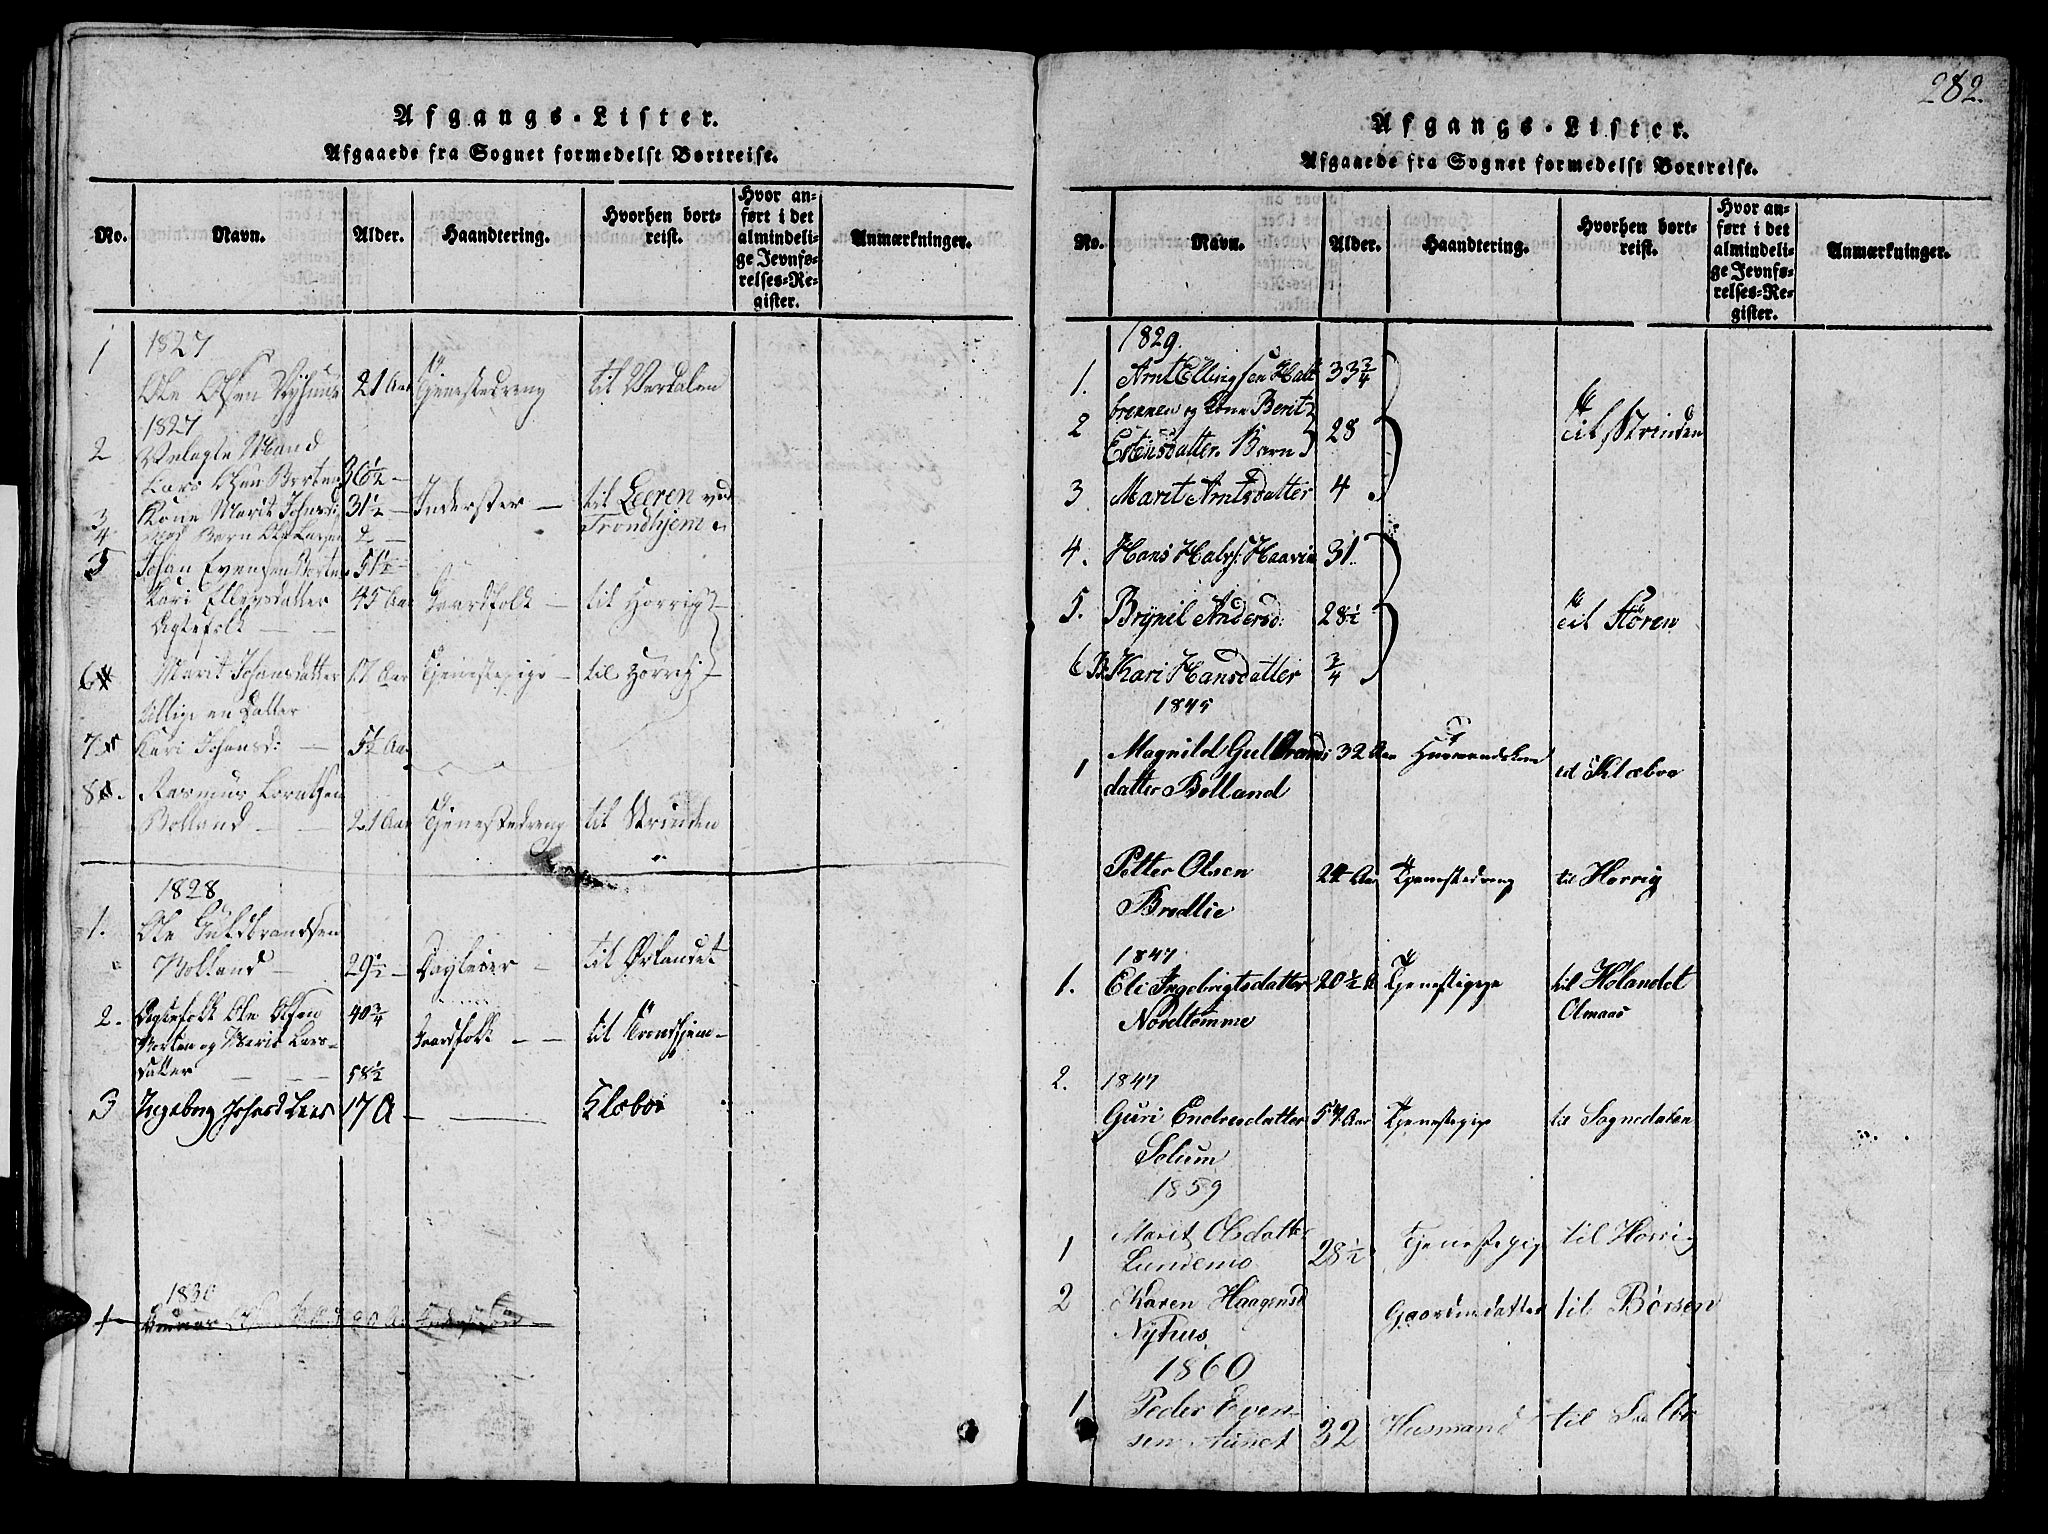 Afgangs-Lister.
Afgaaede fra Sognet formedelst Bortreise.
No. Navn. Alder. Haandtering. Hvorhen bortreist. Hvor anført i det almindelige Jevnførelses-Register. Anmærkninger.
1827
1 Ole Olsen Nyhuus 21 Aar Tjenestedreng til Verdalen
1827
2 Mand
Lars Olsen Borten 36½ –
3 Kone Marit Johnsd 31½ – Inderster – til Leeren ved
4 Barn Ole Larsen 2 – Trondhjem
5 Johan Evensen Borten 51½
Kari Ellevsdatter 45 Aar Gaardfolk – til Horrig
Ægtefolk – –
6 Marit Johansdatter 17 Aar Tjenestepige – til Horrig
en Datter
7 Kari Johansd: – 5½ Aar
8 Rasmus
Bolland – – 21 Aar Tjenestedreng til Strinden
1828
1. Ole Guldbrandsen
Bolland – 29½ – til Ørlandet
2. Ægtefolk Ole Olsen 40¾
Borten og Marit Lars- Gaardfolk – – til Trondhjem –
datter – – – 58½
3 Ingeborg 17 A – – Klæboe
1830
1
282.
Afgangs-Lister.
Afgaaede fra Sognet formedelst Bortreise.
No. Navn. Alder. Haandtering. Hvorhen bortreist. Hvor anført i det almindelige Jevnførelses-Register. Anmærkninger.
1829.
1. Arnt Ellingsen Halt 33¾
brekken og Kone Berit
2 Estensdatter. Barn 28 til Strinden
3 Marit Arntsdatter 4
4. Hans Halvs: Haavin 31.
5. Brynil Andersd: 28½ til Støren
6 B. Kari Hansdatter ¾
1845
1 Magnild Gulbrands 32 Aar Huusmandskone til Klæboe
datter Bolland
Petter Olsen 24 Aar Tjenestedreng til Horrig
Brødlie
1847
1. Eli Ingebrigtsdatter 20½ A Tjenestepige til Hølandet
Nordtømme
2. 1847
Guri Endresdatter 54 Aar Tjenestepige til Sognedalen
Solum
1859
1 Marit Olsdatter
Lundemo 28½ Tjenestepige til Horrig
2 Karen Haagensd Gaardmdatter til Børsen
Nyhus
1860
1 Peder Even-
sen Aunet 32 Husmand til Selbo